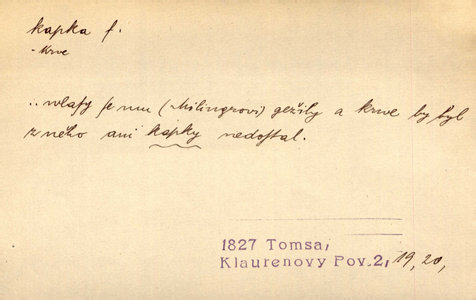 kapka f.
- krve
..wlasy se mu (Milingrovi) gežily a krwe by byl
z něho ani kapky nedostal.
1827 Tomsa,
Klaurenovy Pov.2, 19, 20,